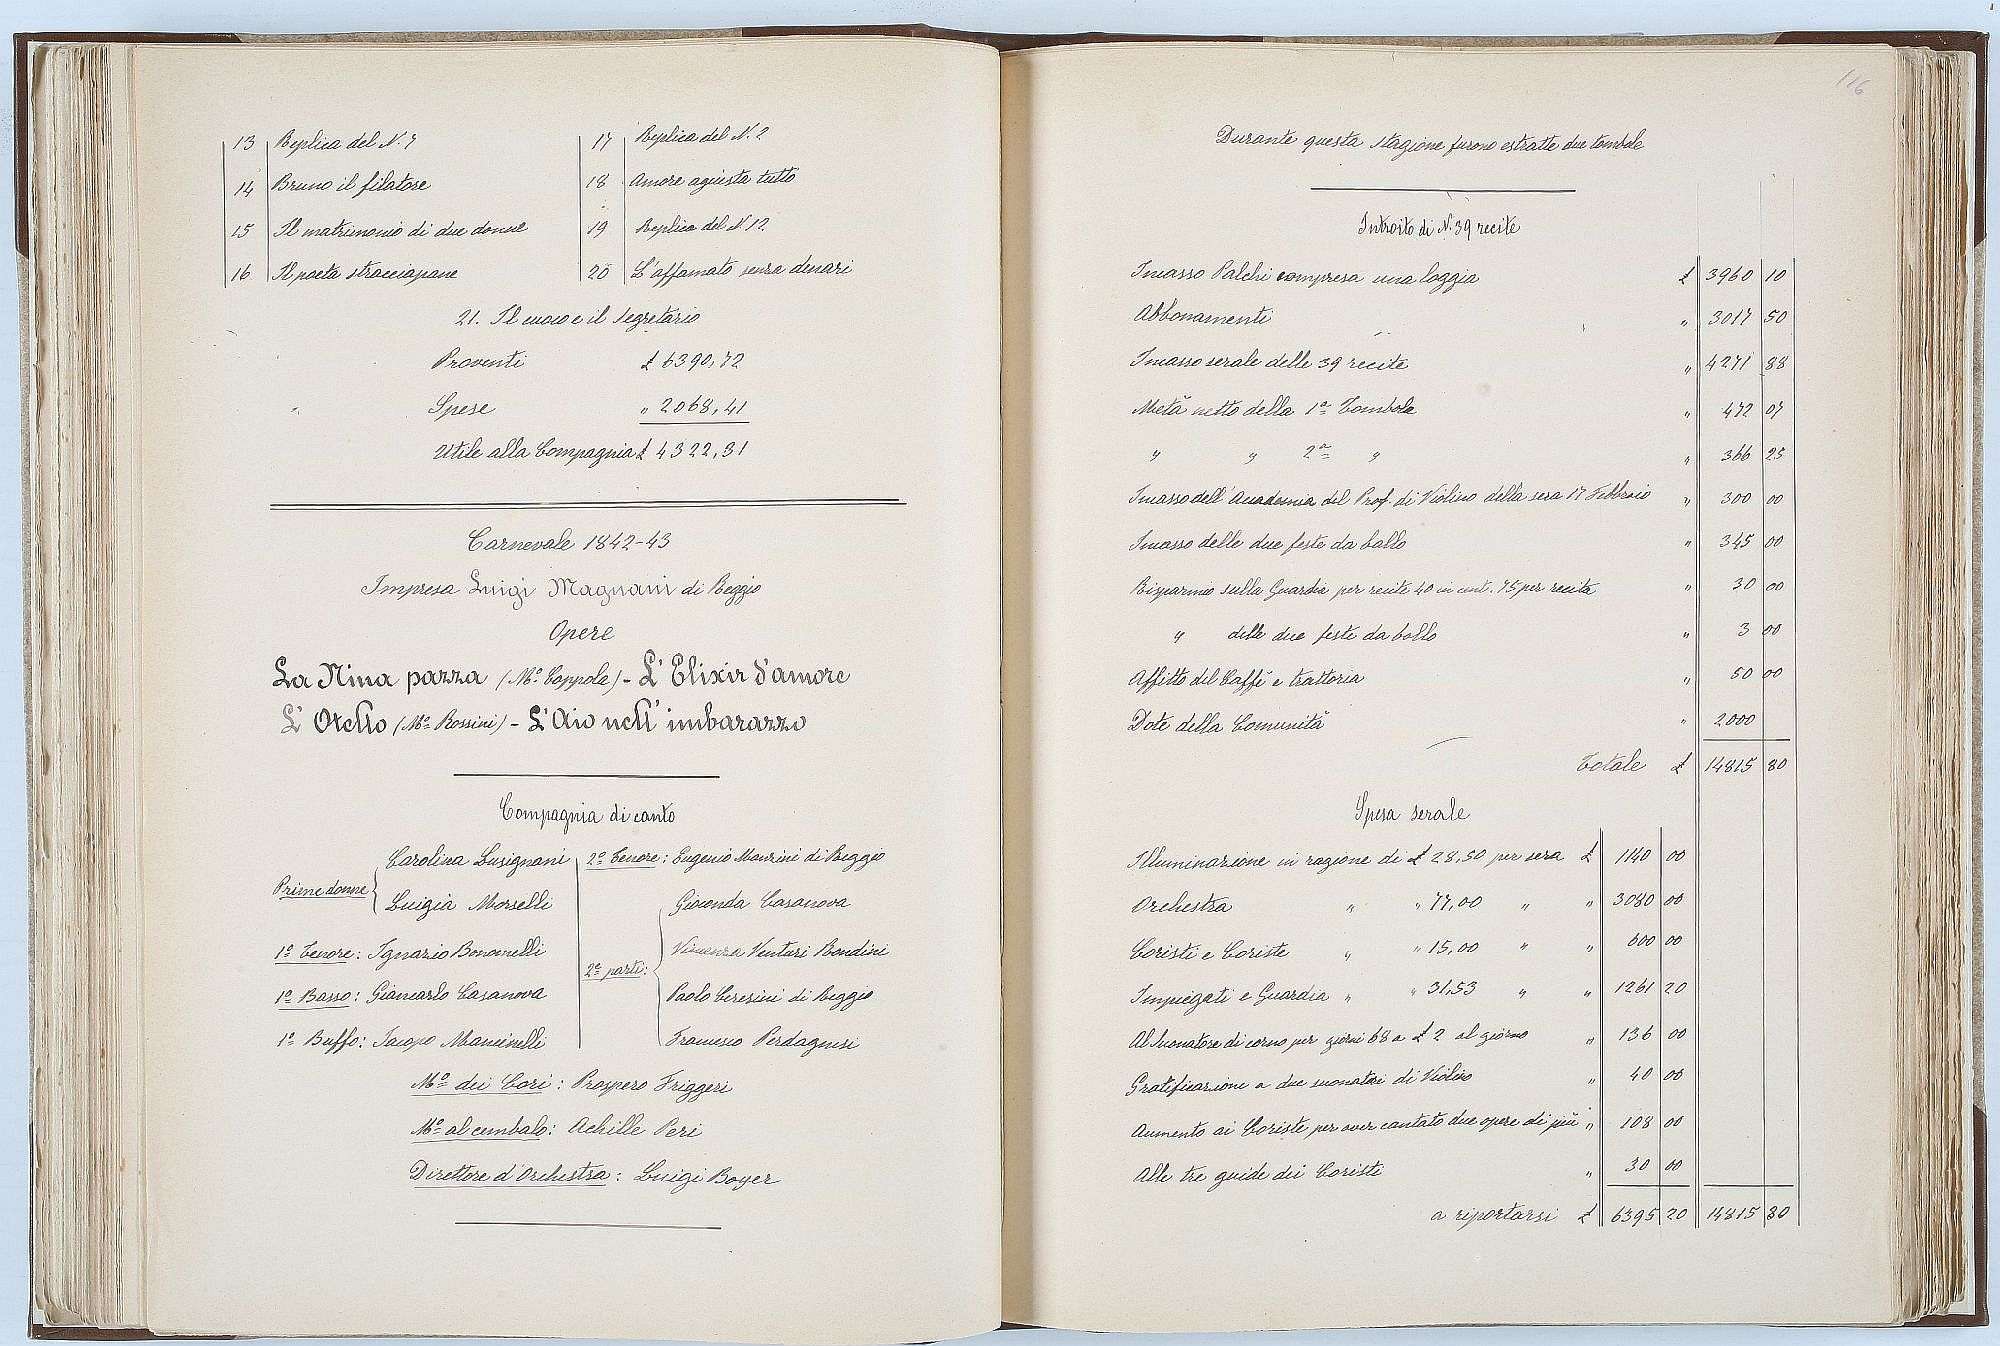 13 Replica del N. 7
14 Bruno il filatore
15 Il matrimonio di due donne
16 Il poeta stracciapane
17 Replica del N. 2
18 Amore agiusta tutto
19 Replica del N 12
20 L'affamato senza denari
21. Il cuoco e il segretario
Proventi £ 6390,72
Spese " 2068,41
Utile alla Compagnia £ 4322,31
Carnevale 1842-43
Impresa Luigi Magnani di Reggio
Opere
La Nina pazza (Mo. Coppola) - L'Elixir d'amore
L'Otello (Mo. Rossini) - L'Aio nell'imbarazzo
Compagnia di canto
Prime donne { Carolina Lusignani
Luigia Morselli
1o Tenore: Ignazio Bononelli
1o Basso: Giancarlo Casanova
1o Buffo: Jacopo Mancinelli
2o Tenore: Eugenio Manzini di Reggio
2e parti: { Gioconda Casanova
Vincenza Venturi Bondini
Paolo Ceresini di Reggio
Francesco Perdagnesi
Mo dei Cori: Prospero Friggeri
Mo al cembalo: Achille Peri
Direttore d'Orchestra: Luigi Boyer
116
Durante questa stagione furono estratte due tombole
Introito di N. 39 recite
Incasso Palchi compresa una loggia £ 3960 10
Abbonamenti " 3017 50
Incasso serale delle 39 recite " 4271 88
Metà netto della 1a Tombola " 472 07
" " 2a " " 366 25
Incasso dell'Accademia del Prof. di Violino della sera 17 Febbraio " 300 00
Incasso delle due feste da ballo " 345 00
Risparmio sulla Guardia per recite 40 in cent. 75 per recita " 30 00
" delle due feste da ballo " 3 00
Affitto del Caffè e trattoria " 50 00
Dote della Comunità " 2000
Totale £ 14815 80
Spesa serale
Illuminazione in ragione di £ 28,50 per sera £ 1140 00
Orchestra " " 77,00 " " 3080 00
Coristi e Coriste " " 15,00 " " 600 00
Impiegati e Guardia " " 31,53 " " 1261 20
Al suonatore di corno per giorni 68 a £ 2 al giorno " 136 00
Gratificazione a due suonatori di Violino " 40 00
Aumento ai Coriste per aver cantato due opere di più " 108 00
Alle tre guide dei Coristi " 30 00
a riportarsi £ 6395 20 14815 80